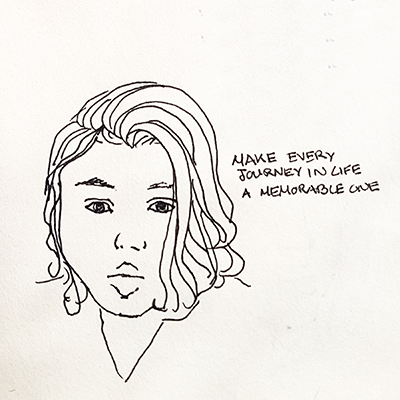 MAKE EVERY
JOURNEY IN LIFE
A MEMORABLE ONE